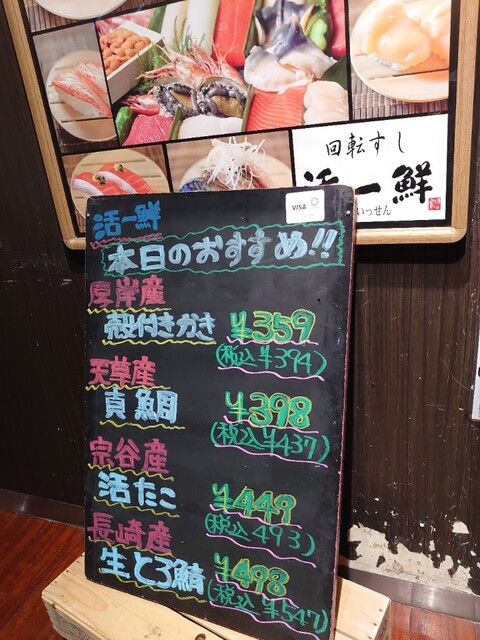 回転すし
活一鮮
いっせん
VISA
活一鮮
本日のおすすめ!!
厚岸産
殻付きかき ¥359
(税込¥394)
天草産
真鯛 ¥398
(税込¥437)
宗谷産
活たこ ¥449
(税込493)
長崎産
生とろ鯖 ¥498
(税込¥547)